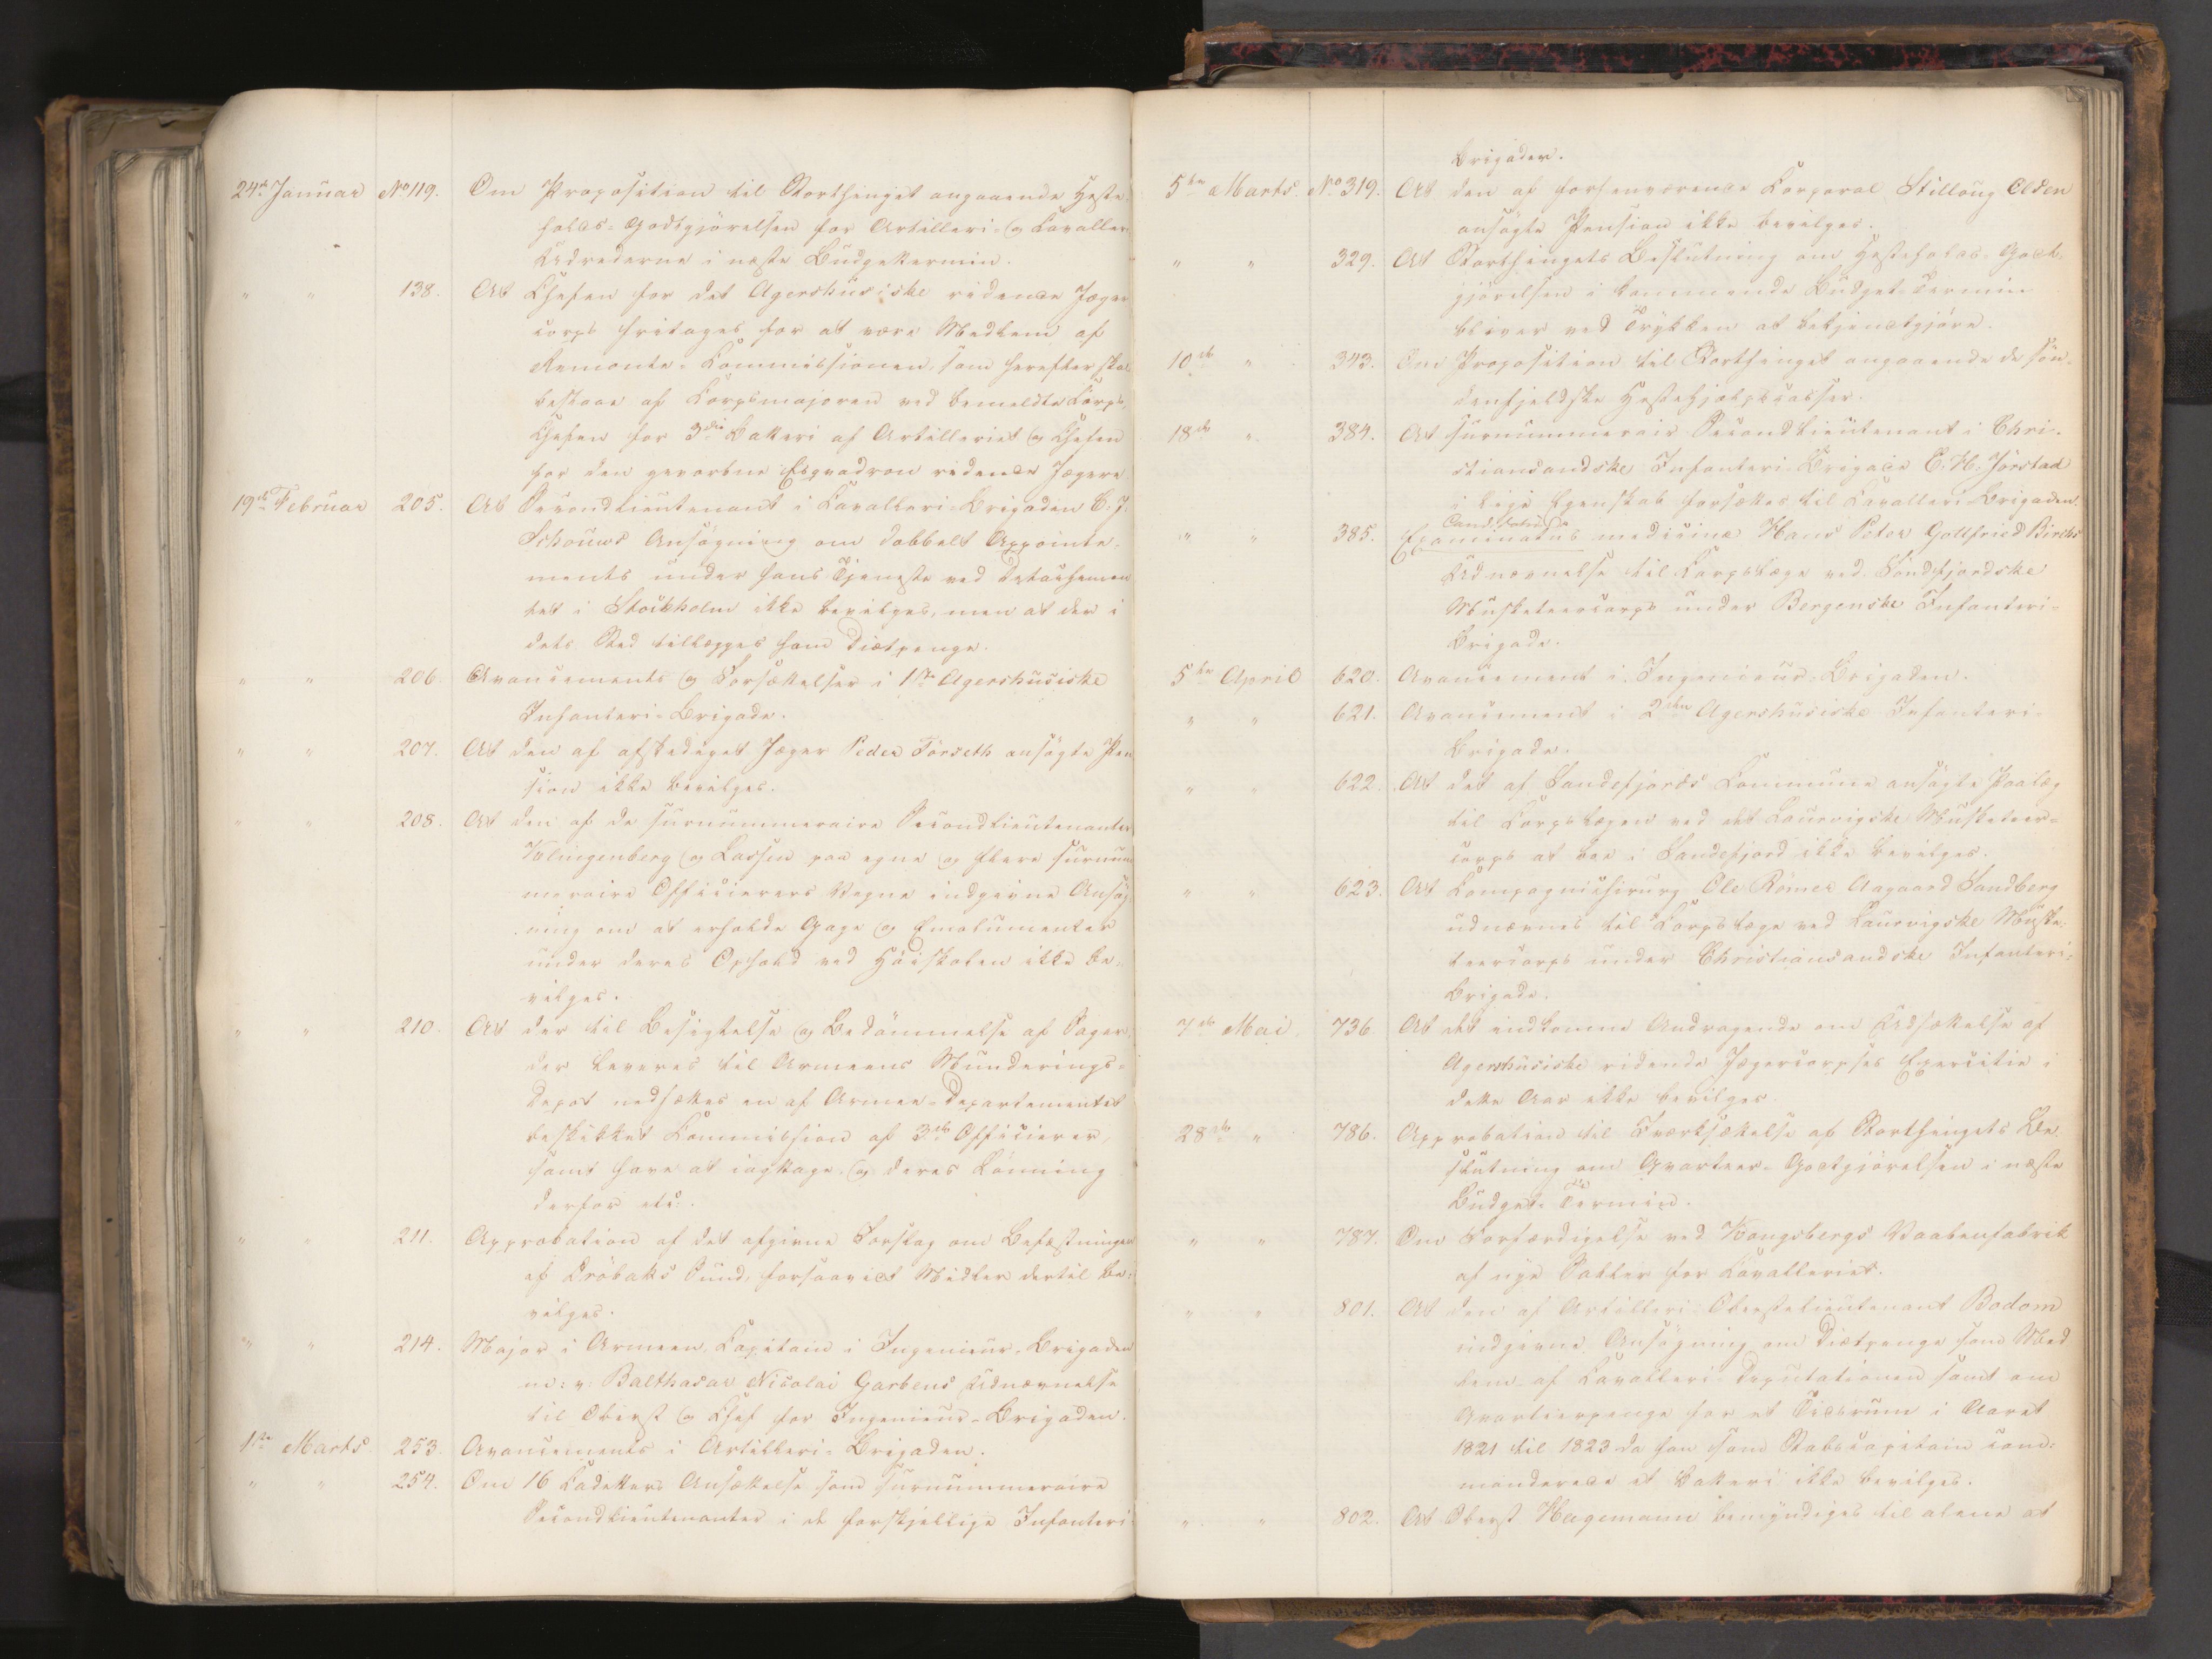 24de Januar No 119. Om Proposition til Storthinget angaaende Heste-
holds-Godtgjörelsen for Artilleri- og Cavalleri
Udrederne i næste Budgettermin.
" " 138. At Chefen for det Agershusiske ridende Jæger
corps fritages for at være Medlem af
Remonte-Commissionen, som herefter skal
bestaae af Corpsmajoren ved bemeldte Corps,
Chefen for 3die Batteri af Artilleriet og Chefen
for den gevorbne Esqvadron ridende Jægere
19de Februar 205. At Secondlieutenant i Cavalleri-Brigaden C. J.
Schouws Ansögning om dobbelt Appointe-
ments under hans Tjeneste ved Detachemen
tet i Stockholm ikke bevilges, men at der i
dets Sted tillægges ham Diætpenge.
" " 206. Avancements og Forsættelser i 1ste Agershusiske
Infanteri-Brigade.
" " 207. At den af afskediget Jæger Peder Törseth ansögte Pen
sion ikke bevilges.
" " 208. At den af de surnummeraire Secondlieutenanter
Klingenberg og Lassen paa egne og flere surnum
meraire Officierers Vegne indgivne Ansög-
ning om at erholde Gage og Emolumenter
under deres Ophold ved Höiskolen ikke be-
vilges.
" " 210. At der til Besigtelse og Bedömmelse af Sager,
der leveres til Armeens Munderings-
Depot nedsættes en af Armee-Departementet
beskikket Commission af 3de Officierer,
samt have at iagttage og deres Lönning
derfor etc.
" " 211. Approbation af det afgivne Forslag om Befæstningen
af Dröbaks Sund, forsaavidt Midler dertil be-
vilges.
" " 214. Major i Armeen, Capitain i Ingenieur-Brigaden
m: v: Balthasar Nicolai Garbens Udnævnelse
til Oberst og Chef for Ingenieur-Brigaden.
1ste Marts 253. Avancements i Artilleri-Brigaden.
" " 254. Om 16 Cadetters Ansættelse som surnummeraire
Secondlieutenanter i de forskjellige Infanteri-
Brigader.
5te Marts. No 319. At den af forhenværende Corporal Stilloug Elden
ansögte Pension ikke bevilges.
" " 329. At Storthingets Beslutning om Hesteholds-Godt-
gjörelsen i kommende Budget-Termin
bliver ved Trykken at bekjendtgjöre.
10de " 343. Om Proposition til Storthinget angaaende de sön-
denfjeldske Hestehjælpscasser.
18de " 384. At surnummerair Secondlieutenant i Chri-
stiansandske Infanteri-Brigade E. H. Jörstad
i lige Egenskab forsættes til Cavalleri-Brigaden.
Candidatus
" " 385. Examinatus medicinæ Hans Peter Gottfried Birchs
Udnævnelse til Corpslæge ved Söndfjordske
Musketeercorps under Bergenske Infanteri-
Brigade.
5te April 620. Avancement i Ingenieur-Brigaden.
" " 621. Avancement i 2den Agershusiske Infanteri-
Brigade.
" " 622. At det af Sandefjords Commune ansögte Paalæg
til Corpslægen ved det Laurvigske Musketeer-
corps at boe i Sandefjord ikke bevilges.
" " 623. At Compagnichirurg Ole Römer Aagaard Sandberg
udnævnes til Corpslæge ved Laurvigske Muske-
teercorps under Christiansandske Infanteri-
Brigade.
7de Mai 736 At det indkomne Andragende om Udsættelse af
Agershusiske ridende Jægercorpses Exercitie i
dette Aar ikke bevilges.
28de " 786. Approbation til Iværksættelse af Storthingets Be-
slutning om Qvarteer-Godtgjörelsen i næste
Budget-Termin.
" " 787. Om Forfærdigelse ved Kongsbergs Vaabenfabrik
af nye Sabler for Cavalleriet.
" " 801. At den af Artilleri-Oberstelieutenant Bodom
indgivne Ansögning om Diætpenge som Med
lem af Cavalleri-Deputationen samt om
Qvarteerpenge for et Tidsrum i Aaret
1821 til 1823 da han som Stabscapitain com-
manderede et Batteri ikke bevilges.
" " 802. At Oberst Hagemann bemyndiges til alene at